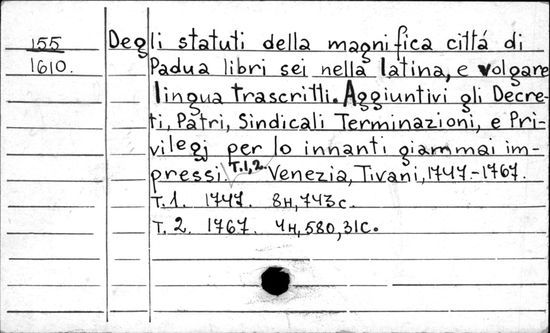 155
1610.
Degli statuti della magnifica cittá di
Padua libri sei nella latina, e volgare
lingua trascritti. Aggiuntivi gli Decre-
ti, Patri, Sindicali Terminazioni, e Pri-
vilegj per lo innanti giammai im-
pressi T.1,2. Venezia, Tivani, 1747.-1767.
T.1. 1747. 8н, 743с.
T.2. 1767. 4н, 580, 31с.